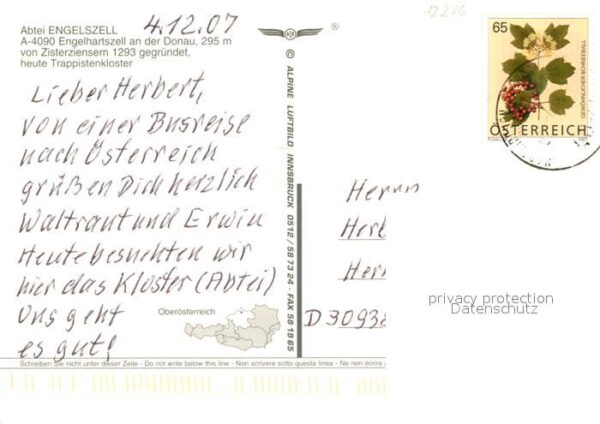 12226
Abtei ENGELSZELL
A-4090 Engelhartszell an der Donau, 295 m
von Zisterziensern 1293 gegründet,
heute Trappistenkloster
4.12.07
Lieber Herbert,
von einer Busreise
nach Österreich
grüßen Dich herzlich
Waltraut und Erwin
Heute besuchten wir
hier das Kloster (Abtei)
Uns geht
es gut!
Oberösterreich
Schreiben Sie nicht unter dieser Zeile - Do not write below this line - Non scrivere sotto questa linea - Ne rien écrire
© ALPINE LUFTBILD INNSBRUCK 0512 / 58 73 24 · FAX 58 19 65
®
65
GEWÖHNLICHER SCHNEEBALL
ÖSTERREICH
Herrn
Herb
Herr
D 30938
privacy protection
Datenschutz